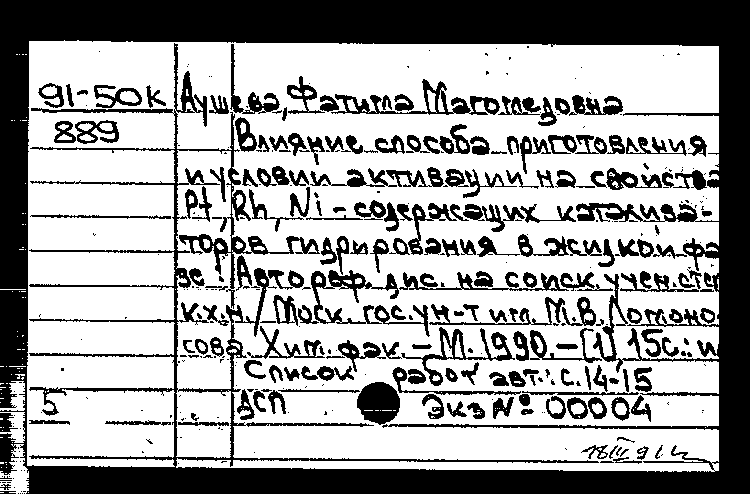 91-50К Аушева, Фатима Магомедовна
889 Влияние способа приготовления
и условий активации на свойства
Pt, Rh, Ni - содержащих катализа-
торов гидрирования в жидкой фа
зе : Автореф. дис. на соиск. учен. степ
к.х.н. / Моск. гос. ун-т им. М.В. Ломоно-
сова. Хим. фак. – М. 1990. – [1], 15с.: и
Список работ авт.: с. 14-15
5 ДСП Экз № 00004